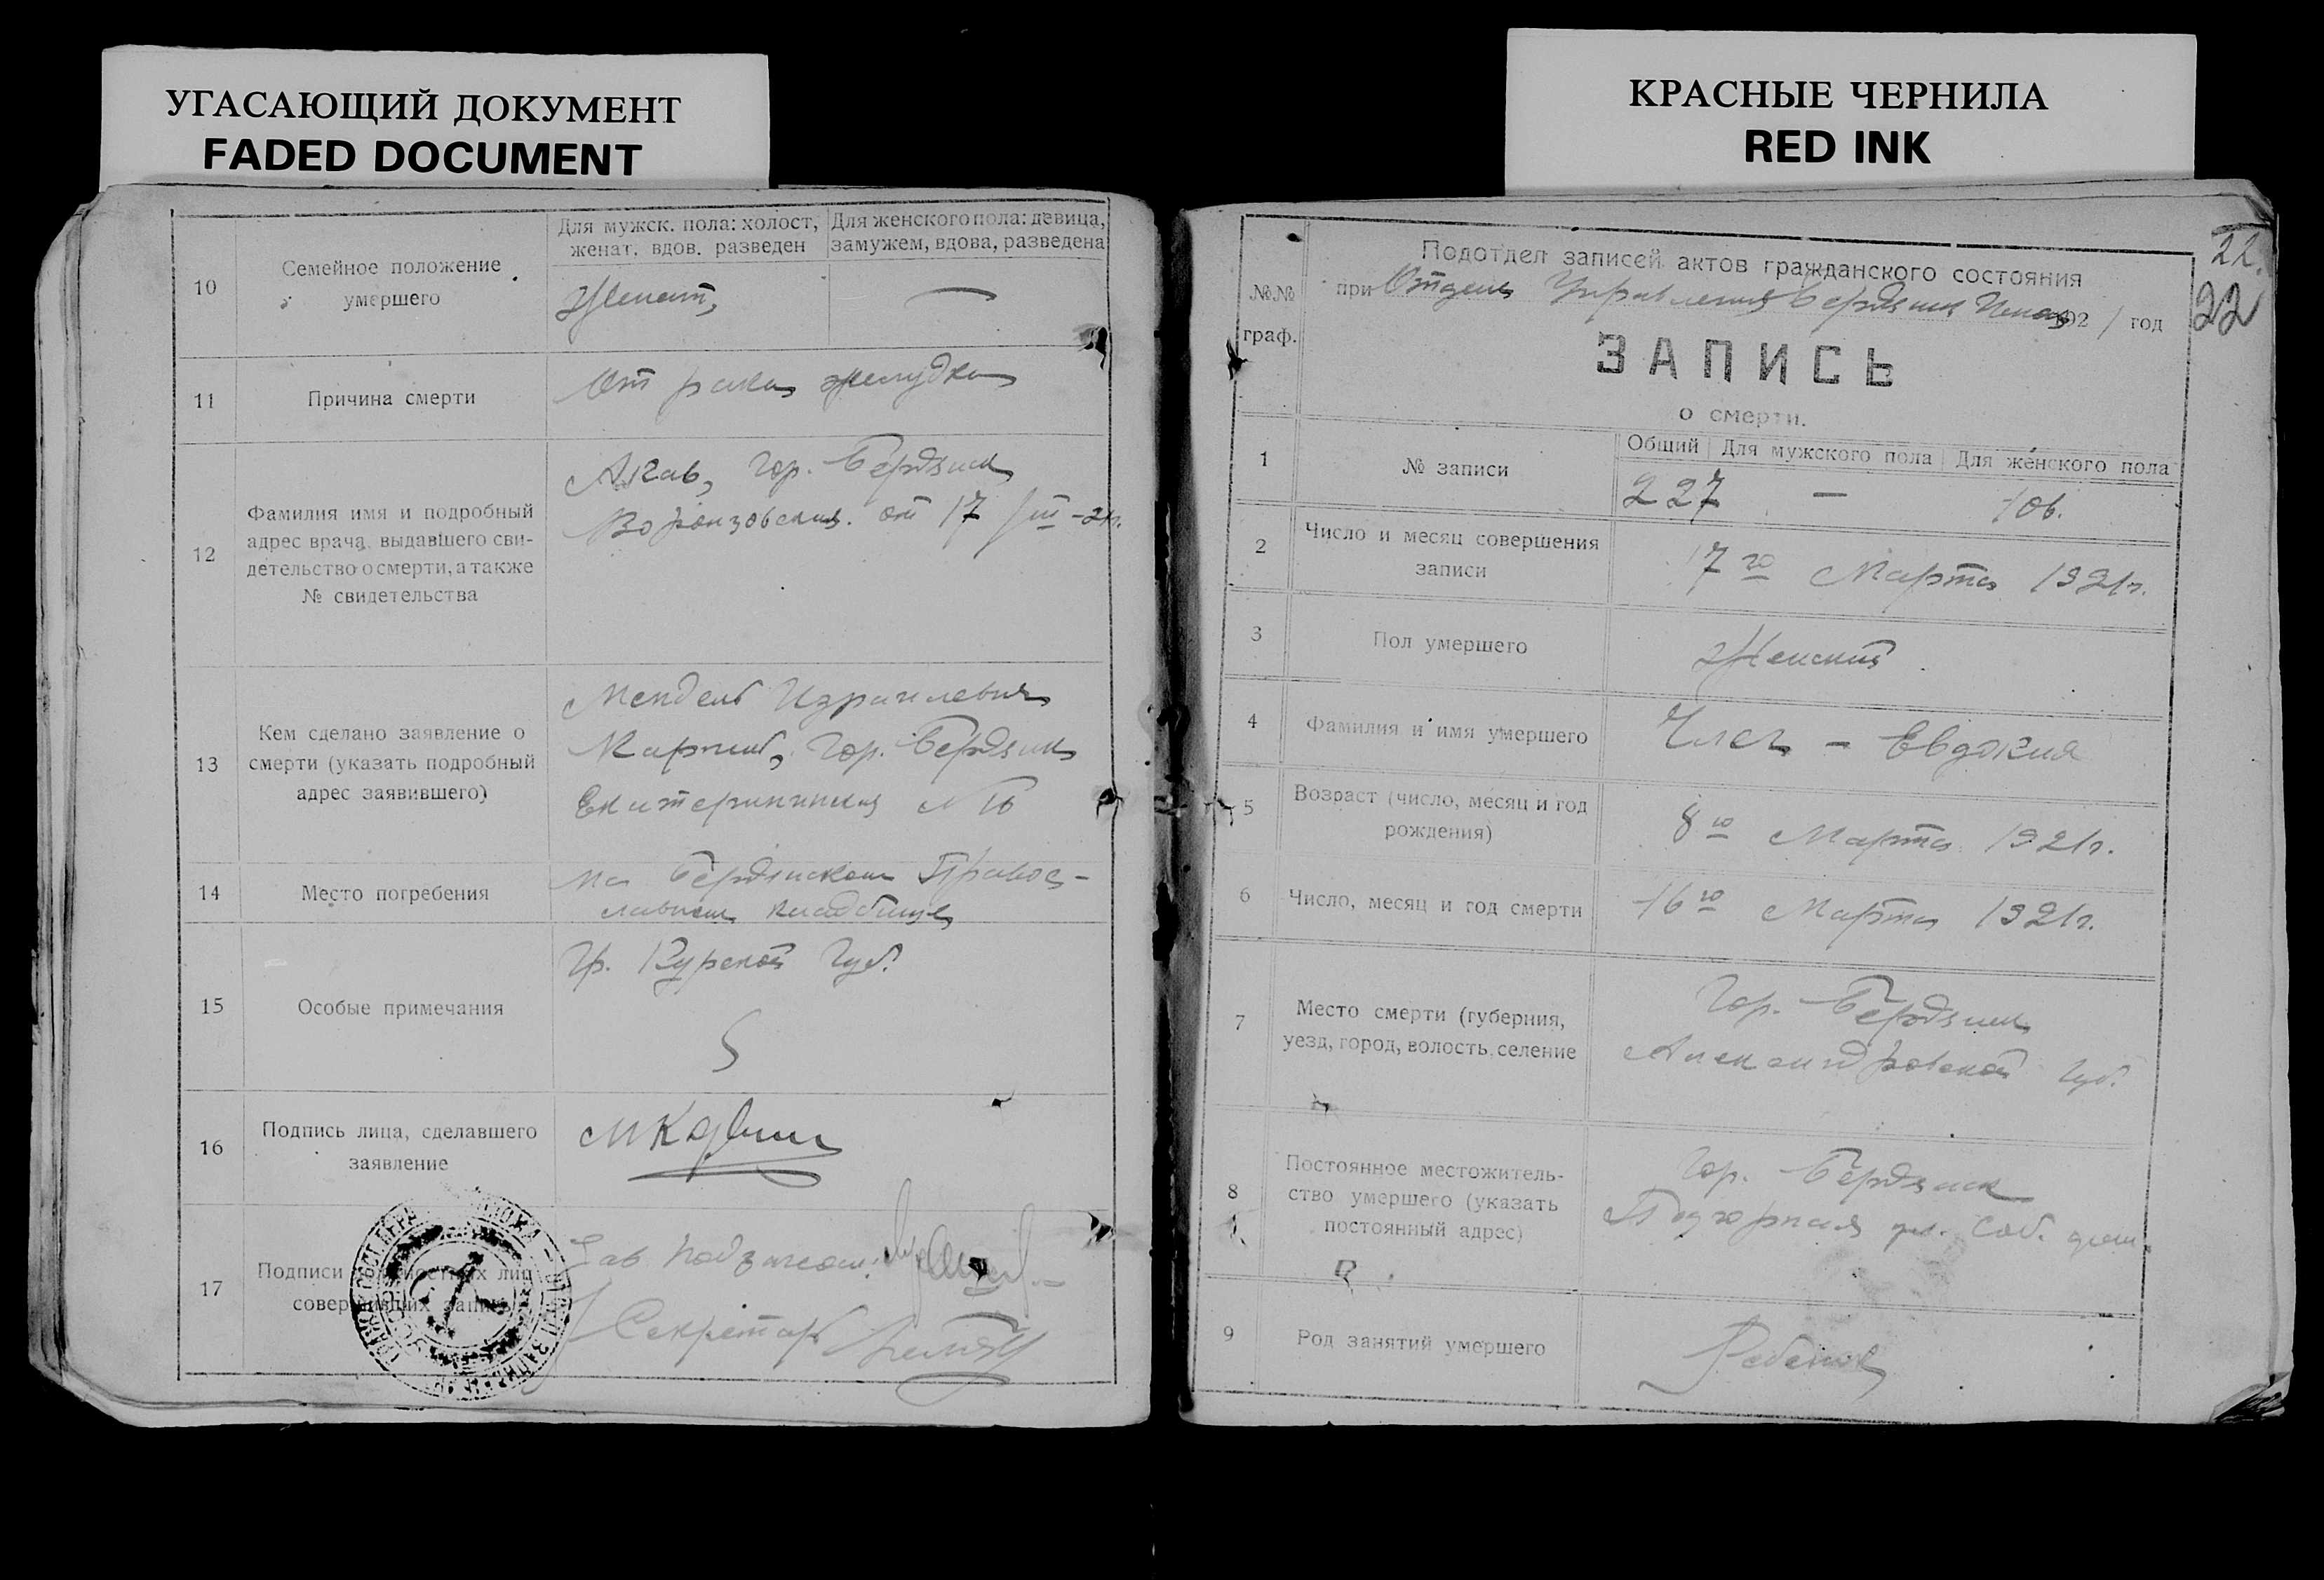 УГАСАЮЩИЙ ДОКУМЕНТ
FADED DOCUMENT
10
Семейное положение
умершего
Для мужск. пола: холост,
женат, вдов. разведен
Для женского пола: девица,
замужем, вдова, разведена
Женат,
—
11
Причина смерти
От рака желудка
12
Фамилия имя и подробный
адрес врача, выдавшего сви-
детельство о смерти, а также
№ свидетельства
гор. Бердянск
Воронцовская. от 17/III-21г.
13
Кем сделано заявление о
смерти (указать подробный
адрес заявившего)
Мендель Израилевич
гор. Бердянск
Екатерининская №
14
Место погребения
На Бердянском Правос-
лавном кладбище
15
Особые примечания
Гр. Курской Губ.
16
Подпись лица, сделавшего
заявление
17
Подписи должностных лиц
совершивших запись
Зав
Секретарь
КРАСНЫЕ ЧЕРНИЛА
RED INK
22.
22
№№
граф.
Подотдел записей актов гражданского состояния
при Отделе Управления Бердянск 192 1 год
ЗАПИСЬ
о смерти.
1
№ записи
Общий
Для мужского пола
Для женского пола
227
—
106.
2
Число и месяц совершения
записи
17го Марта 1921г.
3
Пол умершего
Женский
4
Фамилия и имя умершего
- Евдокия
5
Возраст (число, месяц и год
рождения)
8го Марта 1921г.
6
Число, месяц и год смерти
16го Марта 1921г.
7
Место смерти (губерния,
уезд, город, волость, селение
Гор. Бердянск
Александровской губ.
8
Постоянное местожитель-
ство умершего (указать
постоянный адрес)
Гор. Бердянск
Подгорная ул. соб. дом.
9
Род занятий умершего
Ребенок